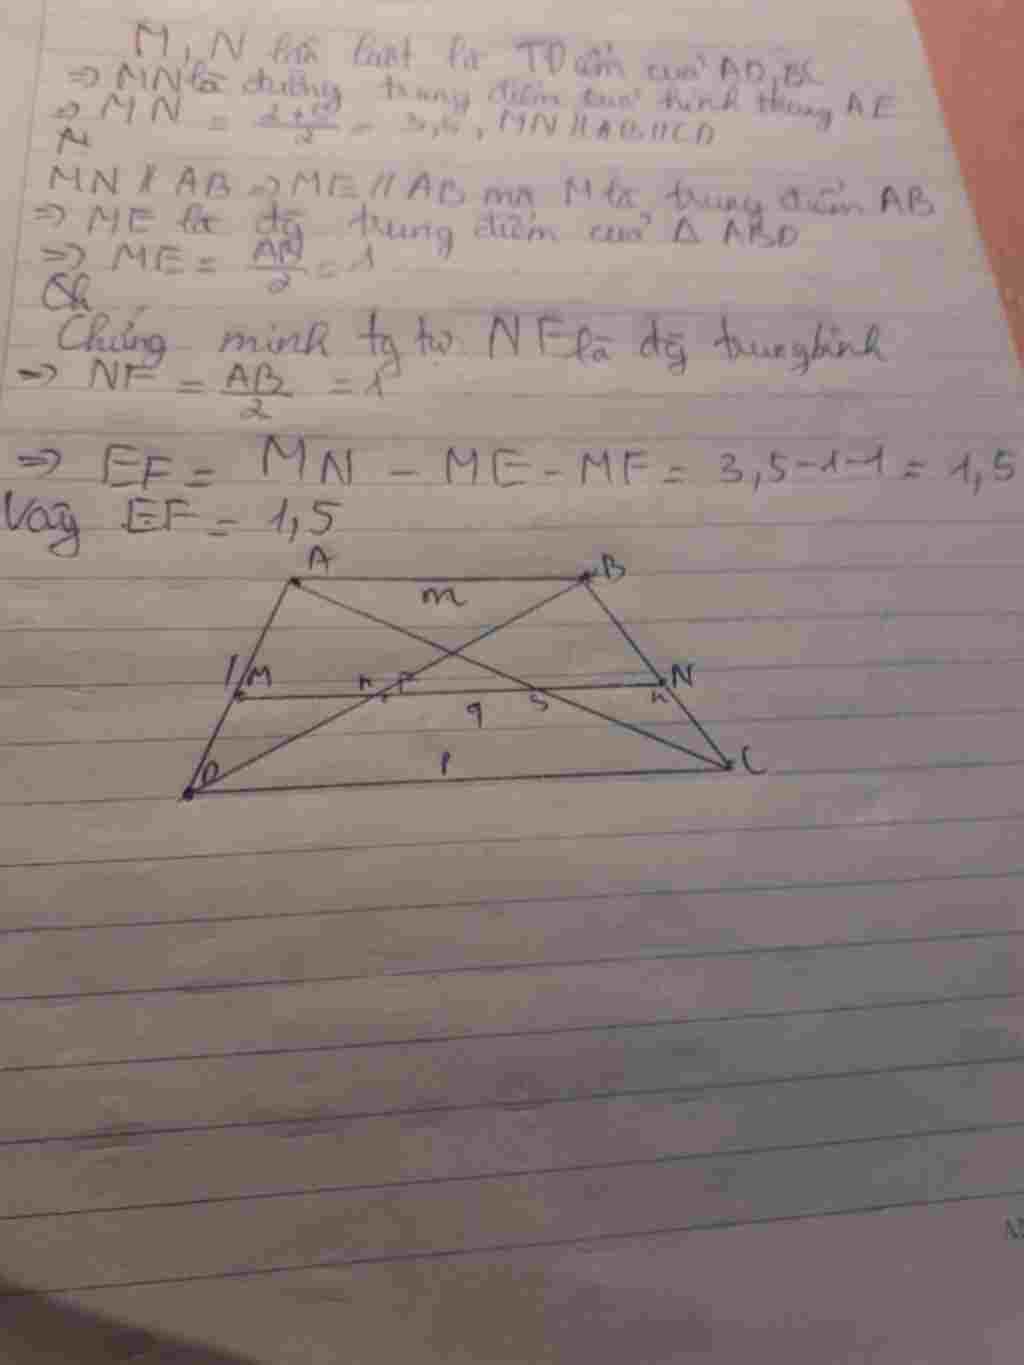 M, N lần lượt là TĐ điểm của AD, BC
=> MN là đường trung điểm của hình thang AE
=> MN = 2+5/2 = 3,5, MN // AB // CD
N
MN // AB => ME // AB mà M là trung điểm AB
=> ME là đg trung điểm của Δ ABD
=> ME = AB/2 = 1
Ch
Chứng minh tg tự NF là đg trung bình
=> NF = AB/2 = 1
=> EF = MN - ME - MF = 3,5-1-1 = 1,5
Vậy EF = 1,5
A B
m
M n F N
q s n
D C